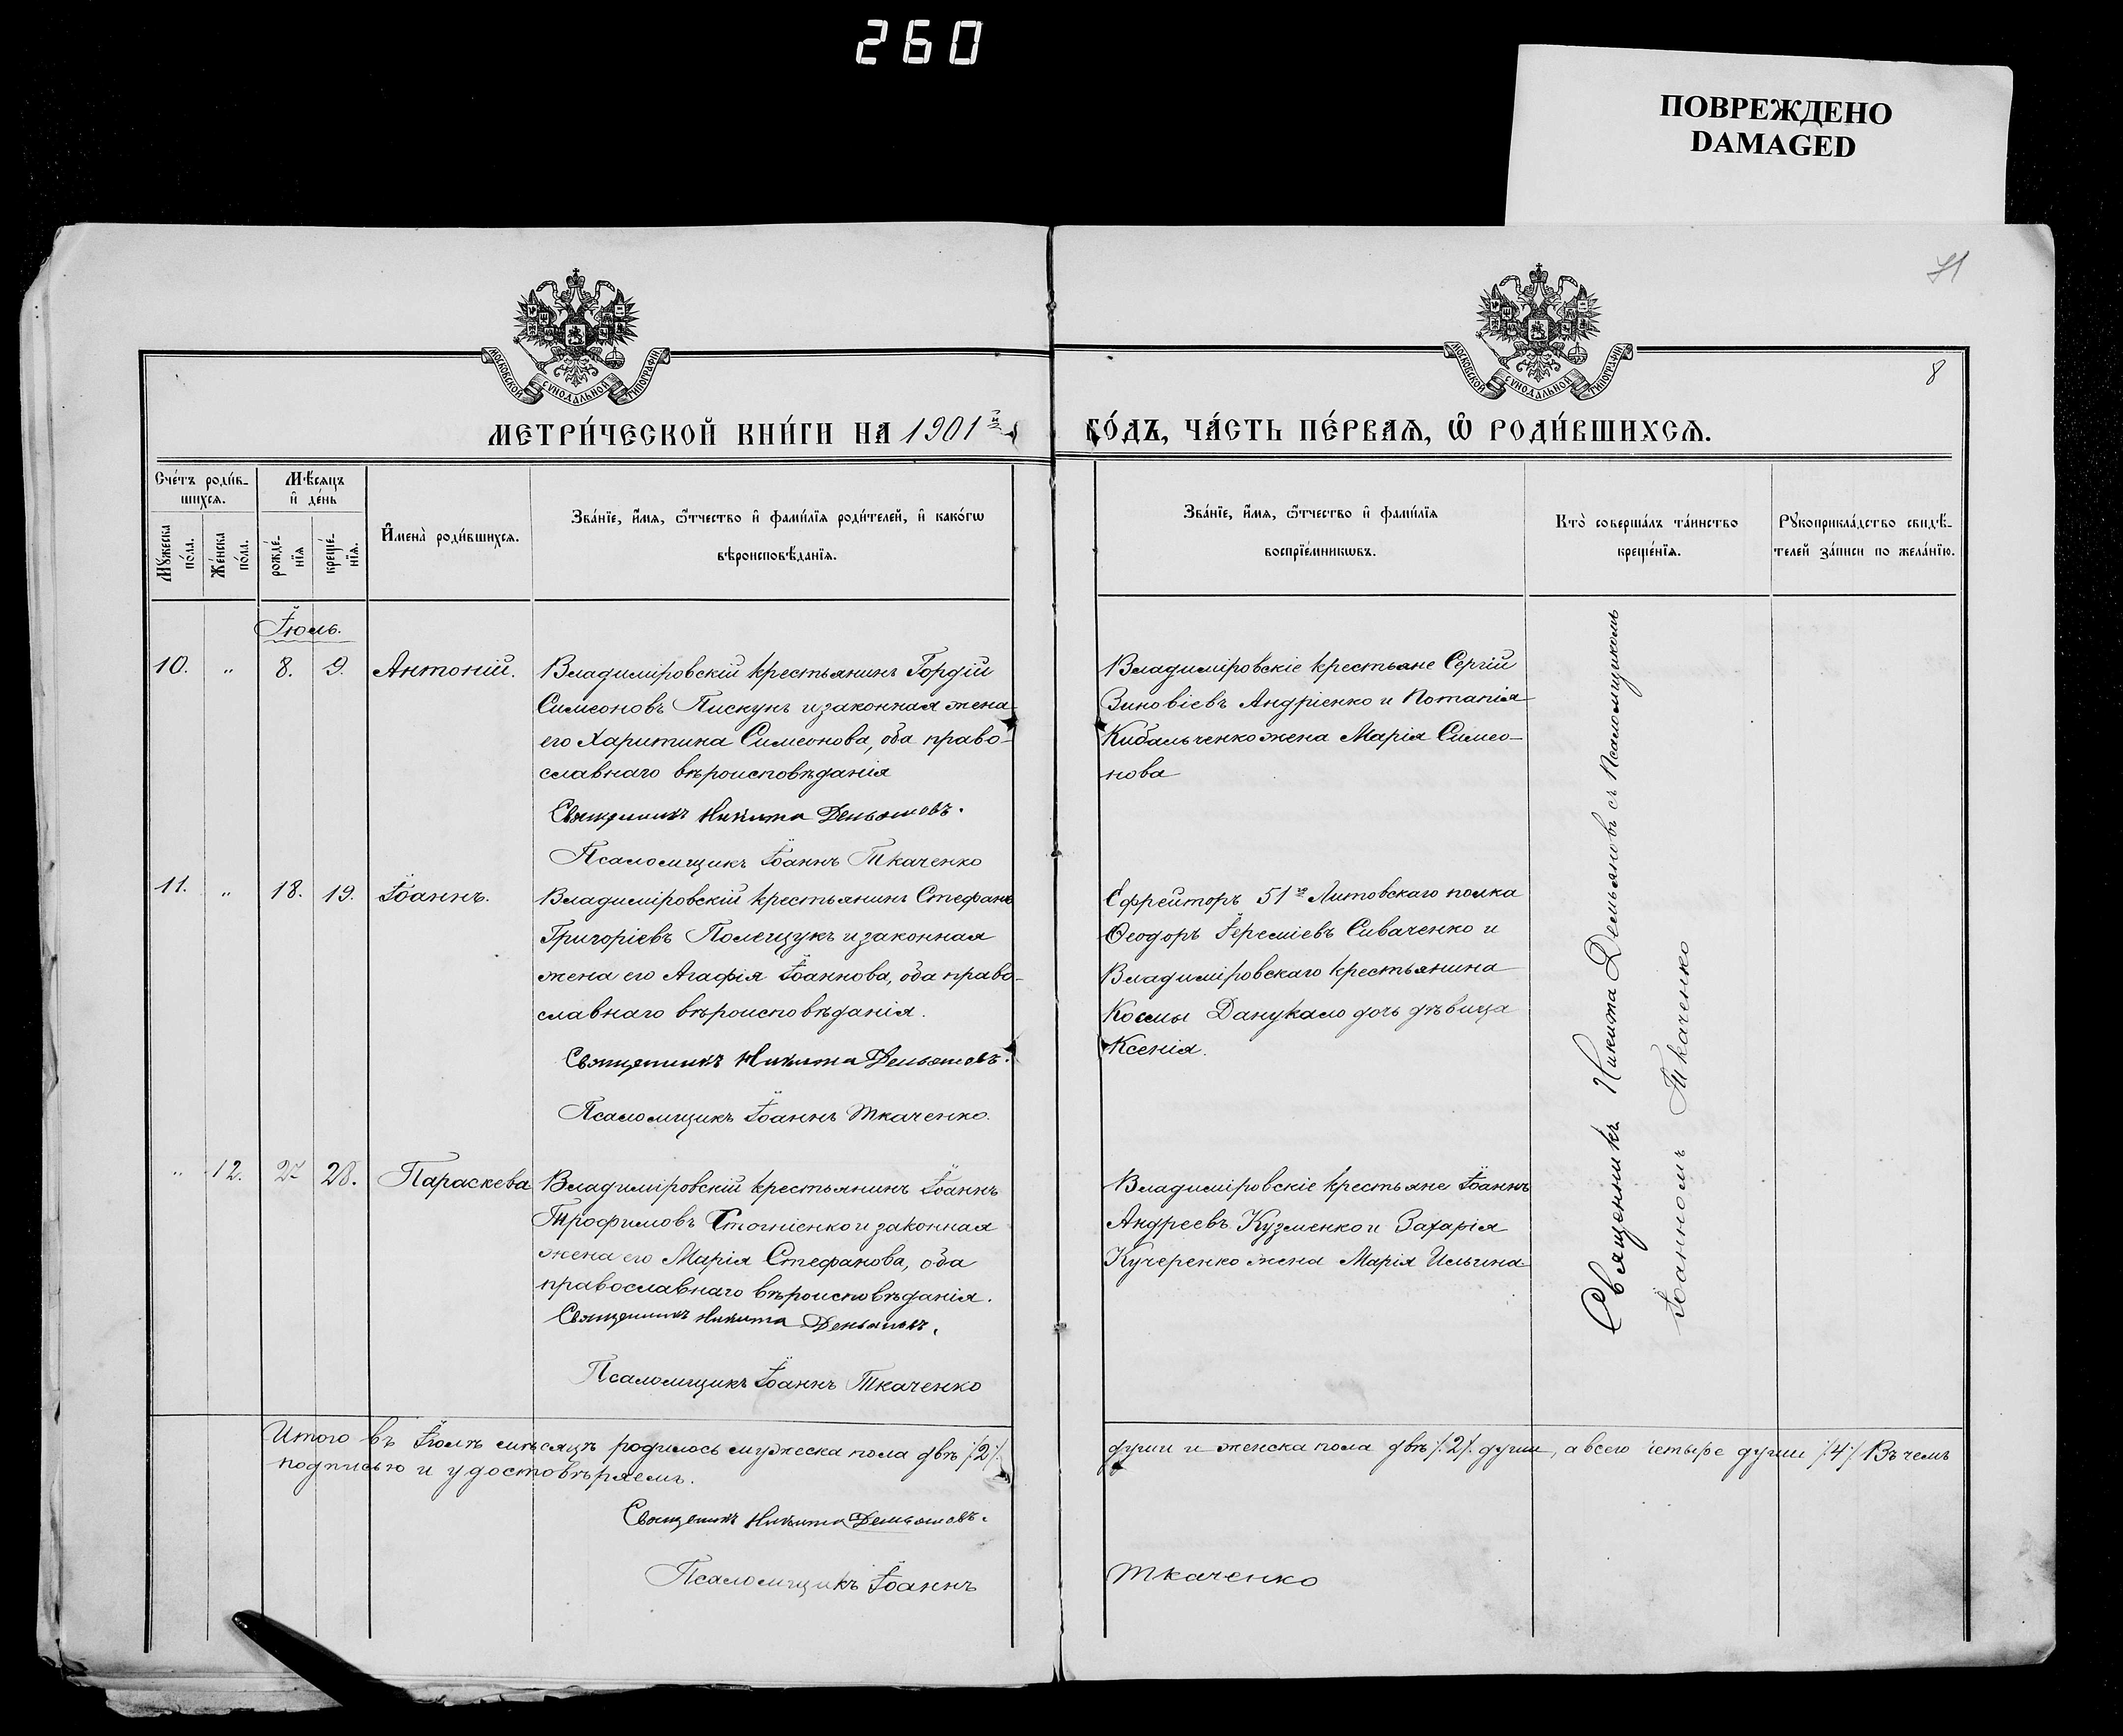 260
ПОВРЕЖДЕНО
DAMAGED
71
МОСКОВСКОЙ СѴНОДАЛЬНОЙ ТИПОГРАФІИ
МОСКОВСКОЙ СѴНОДАЛЬНОЙ ТИПОГРАФІИ
8
МЕТРИ́ЧЕСКОЙ КНИ́ГИ НА 1901й
ГО́ДЪ, ЧА́СТЬ ПЕ́РВАѦ, Ѽ РОДИ́ВШИХСѦ.
Счéтъ роди́в-
шихсѧ.
Мѣ́сяцъ
и҆ дéнь
Мꙋ́жеска
пóла.
Жéнска
пóла.
рождé-
нїѧ
крещé-
нїѧ.
И҆мена̀ роди́вшихсѧ.
Звáнїе, и҆́мѧ, ѻ҆́тчество и҆ фами́лїѧ роди́телей, и҆ какóгѡ
вѣроисповѣ́данїѧ.
Звáнїе, и҆́мѧ, ѻ҆́тчество и҆ фами́лїѧ
воспрїéмникѡвъ.
Кто̀ совершáлъ тáинство
крещéнїѧ.
Рꙋкоприклáдство свидѣ́-
телей зáписи по желáнїю.
Іюль.
10. „ 8. 9. Антоній.
Владиміровскій крестьянинъ Гордій
Симеоновъ Пискунъ и законная жена
его Харитина Симеонова, оба право-
славнаго вѣроисповѣданія
Священникъ Никита Демьяновъ.
Псаломщикъ Іоаннъ Ткаченко
Владиміровскіе крестьяне Сергій
Зиновіевъ Андріенко и Потапія
Кибальченко жена Марія Симео-
нова
11. „ 18. 19. Іоаннъ.
Владиміровскій крестьянинъ Стефанъ
Григоріевъ Полещукъ и законная
жена его Агафія Іоаннова, оба право-
славнаго вѣроисповѣданія.
Священникъ Никита Демьяновъ.
Псаломщикъ Іоаннъ Ткаченко.
Ефрейторъ 51го Литовскаго полка
Ѳеодоръ Іереміевъ Сиваченко и
Владиміровскаго крестьянина
Космы Данукало дочь дѣвица
Ксенія.
„ 12. 27 28. Параскева
Владиміровскій крестьянинъ Іоаннъ
Трофимовъ Стогніенко и законная
жена его Марія Стефанова, оба
православнаго вѣроисповѣданія.
Священникъ Никита Демьяновъ.
Псаломщикъ Іоаннъ Ткаченко
Владиміровскіе крестьяне Іоаннъ
Андреевъ Кузменко и Захарія
Кучеренко жена Марія Ильина
Священникъ Никита Демьяновъ съ Псаломщикомъ
Іоанномъ Ткаченко
Итого въ Іюлѣ мѣсяцѣ родилось мужеска пола двѣ /2/
души и женска пола двѣ /2/ души, а всего четыре души /4/ Въ чемъ
подписью и удостовѣряемъ.
Священникъ Никита Демьяновъ.
Псаломщикъ Іоаннъ
Ткаченко